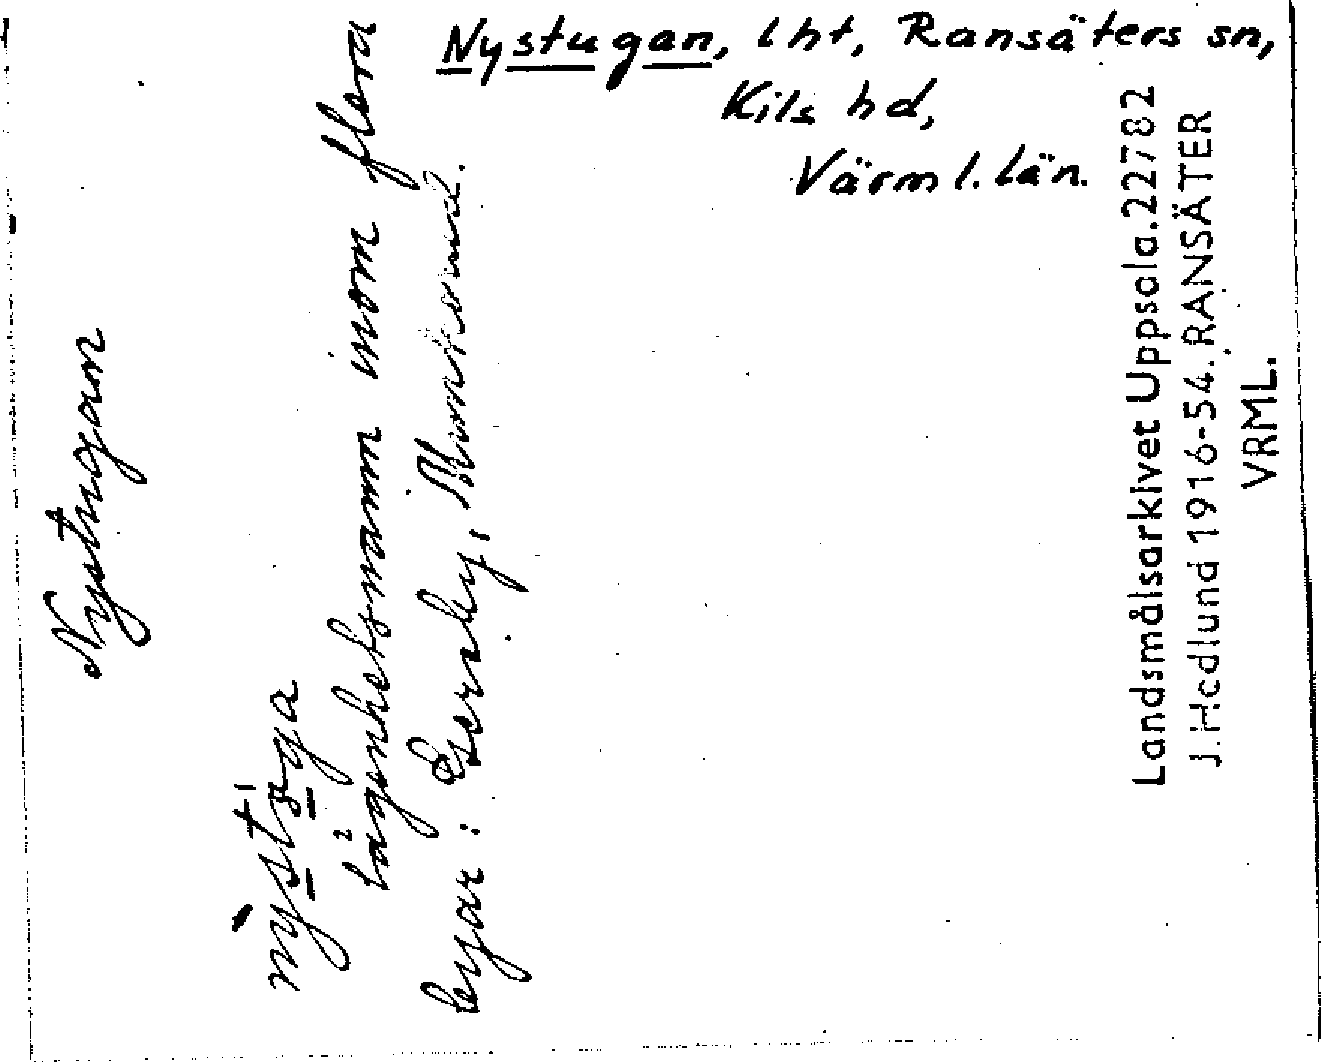 Nystugan, lht, Ransäters sn,
Kils hd,
Värml. län.
Nystugan
lägenhetsnamn inom flera
byar:
Landsmålsarkivet Uppsala. 22782
J. Hedlund 1916-54. RANSÄTER
VRML.